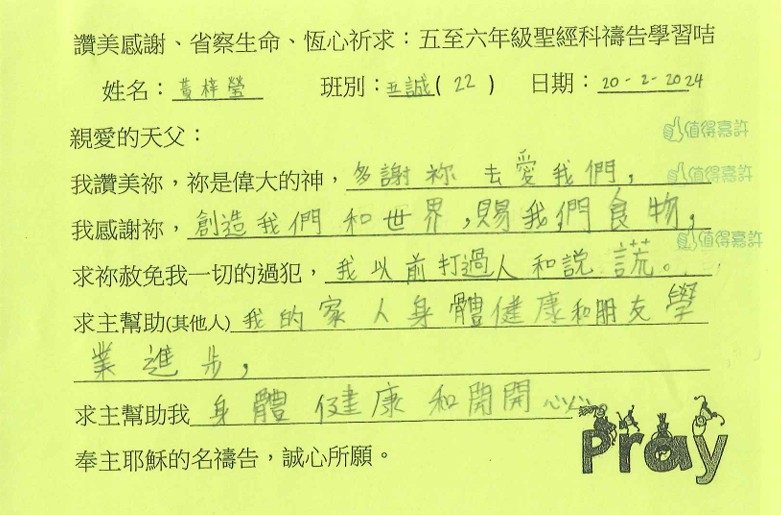 讚美感謝、省察生命、恆心祈求：五至六年級聖經科禱告學習咭
姓名：黃梓瑩 班別：五誠( 22 ) 日期：20-2-2024
親愛的天父：
值得嘉許
我讚美祢，祢是偉大的神，多謝祢去愛我們，
值得嘉許
我感謝祢，創造我們和世界，賜我們食物，
值得嘉許
求祢赦免我一切的過犯，我以前打過人和說謊。
求主幫助(其他人)我的家人身體健康和朋友學
業進步，
求主幫助我身體健康和開開心心
奉主耶穌的名禱告，誠心所願。
Pray